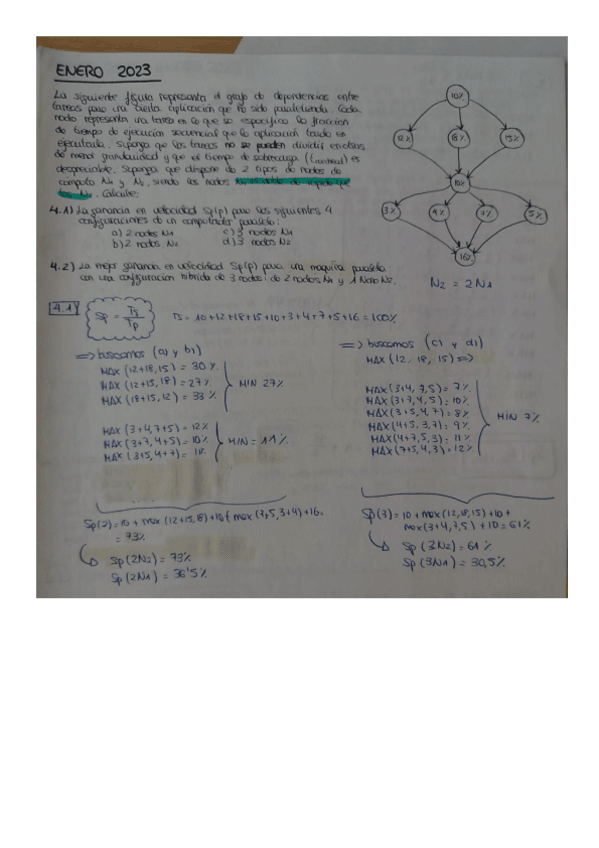 ENERO 2023
La siguiente figura representa el grafo de dependencias entre
tareas para una cierta aplicación que ha sido paralelizada. Cada
nodo representa una tarea en la que se especifica la fracción
de tiempo de ejecución secuencial que la aplicación tarda en
ejecutarla. Suponga que las tareas no se pueden dividir en otras
de menor granularidad y que el tiempo de sobrecarga (overhead) es
despreciable. Suponga que dispone de 2 tipos de nodos de
cómputo N1 y N2, siendo los nodos el doble de rápido que
los N. Calcule:
4.1) La ganancia en velocidad Sp(p) para las siguientes 4
configuraciones de un computador paralelo:
a) 2 nodos N1 c) 3 nodos N1
b) 2 nodos N2 d) 3 nodos N2
4.2) La mejor ganancia en velocidad Sp(p) para una maquina paralela
con una configuración hibrida de 3 nodos: de 2 nodos N1 y 1 Nodo N2.
10%
12% 18% 15%
10%
3% 4% 7% 5%
16%
N2 = 2N1
4.1 Sp = Ts/Tp Ts = 10+12+18+15+10+3+4+7+5+16=100%
=> buscamos (a) y b))
MAX (12+18,15) = 30%
MAX (12+15,18) = 27%
MAX (18+15,12) = 33%
MIN 27%
MAX (3+4,7+5) = 12%
MAX (3+7,4+5) = 10%
MAX (3+5,4+7) = 11%
MIN = 11%
Sp(2) = 10 + max (12+15,18)+10+ max(7+5,3+4)+16=
= 73%
Sp (2N2) = 73%
Sp (2N1) = 36'5%
=> buscamos (c) y d))
MAX (12, 18, 15) =>
MAX (3+4, 7,5) = 7%
MAX (3+7, 4,5) = 10%
MAX (3+5, 4,7) = 8%
MAX (4+5, 3,7) = 9%
MAX (4+7,5,3) = 11%
MAX (7+5, 4,3) = 12%
MIN 7%
Sp(3) = 10 + max (12,18,15) +10 +
max(3+4,7,5) + 10 = 61%
Sp (3N2) = 61%
Sp (3N1) = 30,5%